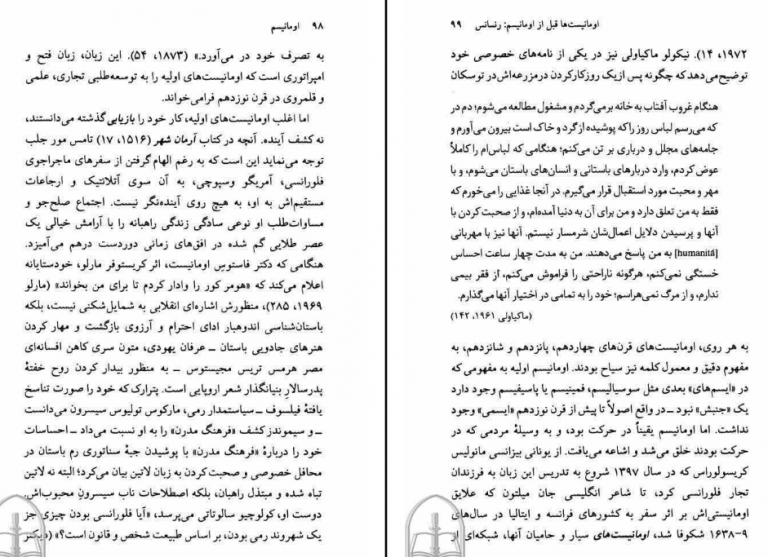 ۹۸ اومانیسم
به تصرف خود در می‌آورد.» (۱۸۷۳، ۵۴). این زبان، زبان فتح و
امپراتوری است که اومانیست‌های اولیه را به توسعه‌طلبی تجاری، علمی
و قلمروی در قرن نوزدهم فرامی‌خواند.
اما اغلب اومانیست‌های اولیه، کار خود را بازیابی گذشته می‌دانستند،
نه کشف آینده. آنچه در کتاب آرمان شهر (۱۵۱۶، ۱۷) تامس مور جلب
توجه می‌نماید این است که به رغم الهام گرفتن از سفرهای ماجراجوی
فلورانسی، آمریگو وسپوچی، به آن سوی آتلانتیک و ارجاعات
مستقیم‌اش به او، به هیچ روی آینده‌نگر نیست. اجتماع صلح‌جو و
مساوات‌طلب او نوعی سادگی زندگی راهبانه را با آرامش خیالی یک
عصر طلایی گم شده در افق‌های زمانی دوردست درهم می‌آمیزد.
هنگامی که دکتر فاستوس اومانیست، اثر کریستوفر مارلو، خودستایانه
اعلام می‌کند که «هومر کور را وادار کردم تا برای من بخواند» (مارلو
۱۹۶۹، ۲۸۵)، منظورش اشاره‌ای انقلابی به شمایل‌شکنی نیست، بلکه
باستان‌شناسی اندوهبار ادای احترام و آرزوی بازگشت و مهار کردن
هنرهای جادویی باستان ـ عرفان یهودی، متون سری کاهن افسانه‌ای
مصر هرمس تریس مجیستوس ـ به منظور بیدار کردن روح خفتهٔ
پدرسالار بنیانگذار شعر اروپایی است. پترارک که خود را صورت تناسخ
یافتهٔ فیلسوف ـ سیاستمدار رمی، مارکوس تولیوس سیسرون می‌دانست
ـ و سیموندز کشف «فرهنگ مدرن» را به او نسبت می‌داد ـ احساسات
خود را دربارهٔ «فرهنگ مدرن» با پوشیدن جبهٔ سناتوری رم باستان در
محافل خصوصی و صحبت کردن به زبان لاتین بیان می‌کرد؛ البته نه لاتین
تباه شده و مبتذل راهبان، بلکه اصطلاحات ناب سیسرون محبوب‌اش.
دوست او، کولوچیو سالوتاتی می‌پرسد، «آیا فلورانسی بودن چیزی جز
یک شهروند رمی بودن، بر اساس طبیعت شخص و قانون است؟»
اومانیست‌ها قبل از اومانیسم: رنسانس ۹۹
۱۹۷۲، ۱۴). نیکولو ماکیاولی نیز در یکی از نامه‌های خصوصی خود
توضیح می‌دهد که چگونه پس از یک روز کار کردن در مزرعه‌اش در توسکان
هنگام غروب آفتاب به خانه برمی‌گردم و مشغول مطالعه می‌شوم؛ دم در
که می‌رسم لباس روز را که پوشیده از گرد و خاک است بیرون می‌آورم و
جامه‌های مجلل و درباری بر تن می‌کنم؛ هنگامی که لباس‌ام را کاملاً
عوض کردم، وارد دربارهای باستانی و انسان‌های باستان می‌شوم، و با
مهر و محبت مورد استقبال قرار می‌گیرم. در آنجا غذایی را می‌خورم که
فقط به من تعلق دارد و من برای آن به دنیا آمده‌ام، و از صحبت کردن با
آنها و پرسیدن دلایل اعمال‌شان شرمسار نیستم. آنها نیز با مهربانی
[humanitá] به من پاسخ می‌دهند. من به مدت چهار ساعت احساس
خستگی نمی‌کنم، هرگونه ناراحتی را فراموش می‌کنم، از فقر بیمی
ندارم، و از مرگ نمی‌هراسم؛ خود را به تمامی در اختیار آنها می‌گذارم.
(ماکیاولی ۱۹۶۱، ۱۴۲)
به هر روی، اومانیست‌های قرن‌های چهاردهم، پانزدهم و شانزدهم، به
مفهوم دقیق و معمول کلمه نیز سیاح بودند. اومانیسم اولیه به مفهومی که
در «ایسم‌های» بعدی مثل سوسیالیسم، فمینیسم یا پاسیفیسم وجود دارد
یک «جنبش» نبود ـ در واقع اصولاً تا پیش از قرن نوزدهم «ایسمی» وجود
نداشت. اما اومانیسم یقیناً در حرکت بود، و به وسیلهٔ مردمی که در
حرکت بودند خلق می‌شد و اشاعه می‌یافت. از یونانی بیزانسی مانوئیس
کریسولوراس که در سال ۱۳۹۷ شروع به تدریس این زبان به فرزندان
تجار فلورانسی کرد، تا شاعر انگلیسی جان میلتون که علایق
اومانیستی‌اش بر اثر سفر به کشورهای فرانسه و ایتالیا در سال‌های
۹-۱۶۳۸ شکوفا شد، اومانیست‌های سیار و حامیان آنها، شبکه‌ای از